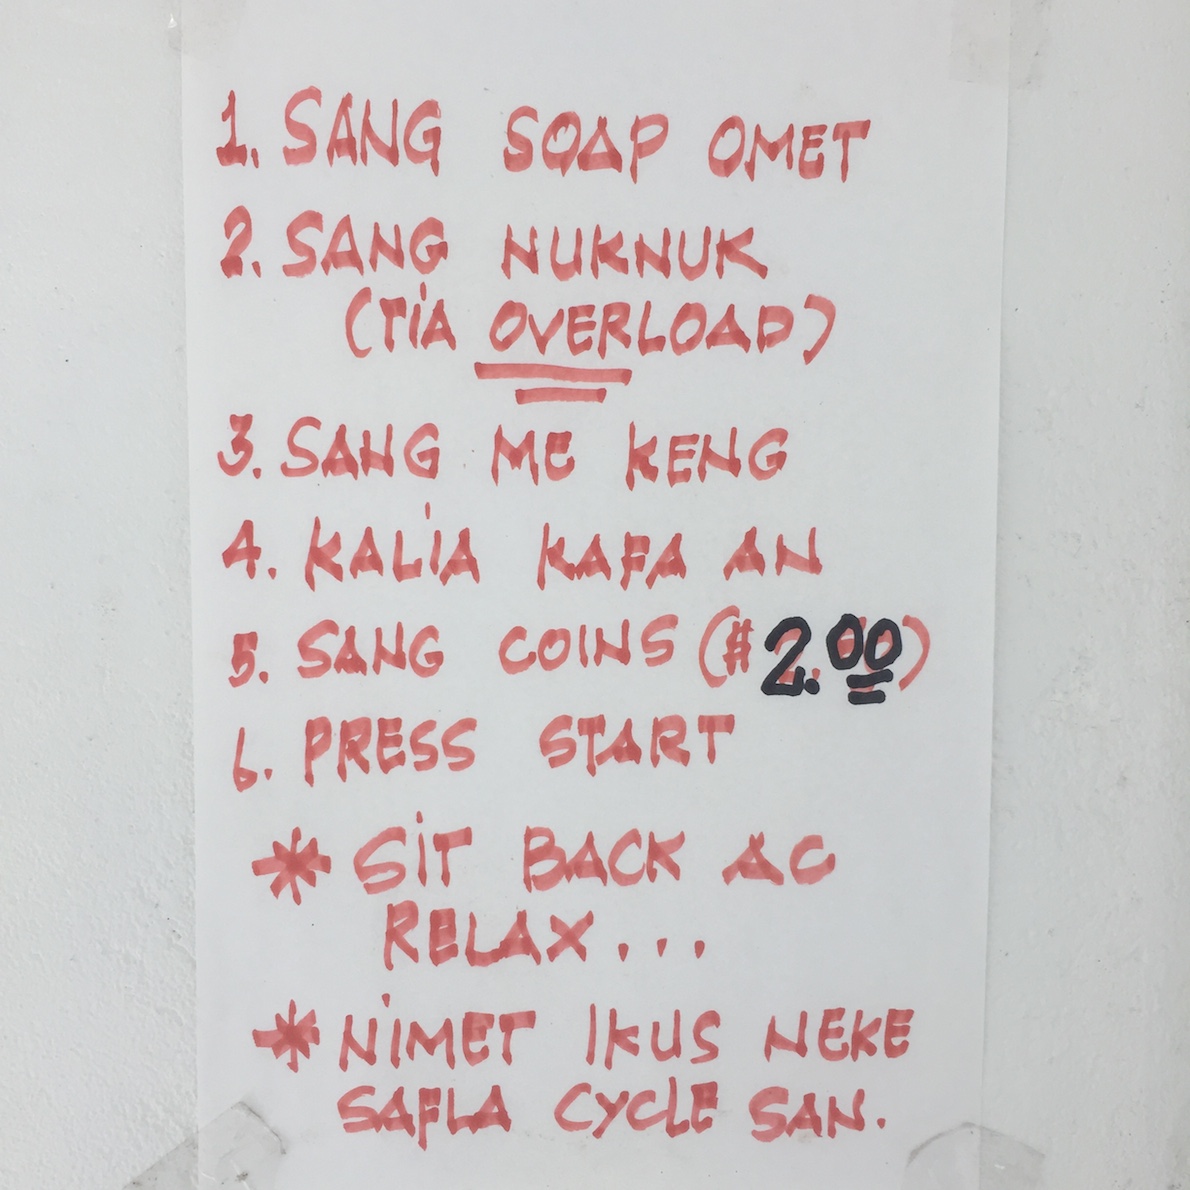 1. SANG SOAP OMET
2. SANG NUKNUK
(TIA OVERLOAD)
3. SANG ME KENG
4. KALIA KAFA AN
5. SANG COINS ($2.00)
6. PRESS START
* SIT BACK AC
RELAX...
* NIMET IKUS NEKE
SAFLA CYCLE SAN.